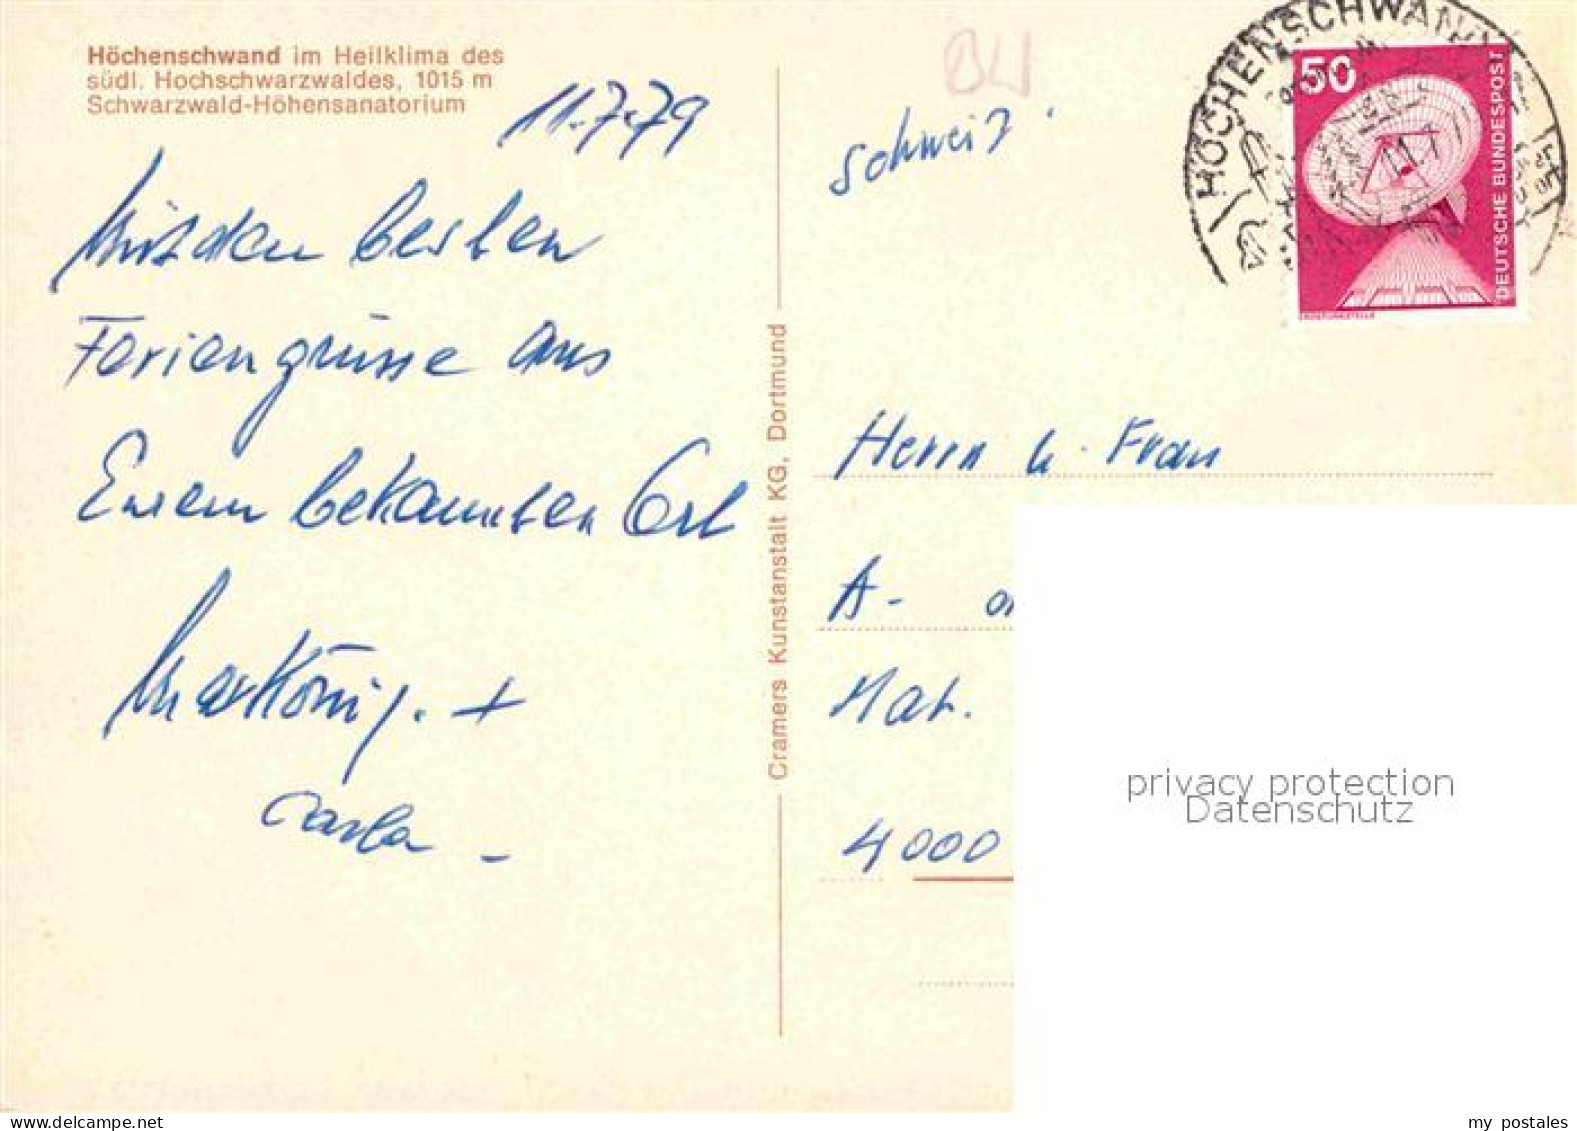 Höchenschwand im Heilklima des
südl. Hochschwarzwaldes, 1015 m
Schwarzwald-Höhensanatorium
11.7.79
Mit den besten
Feriengrüsse aus
Eurem bekannten Ort
Max König. +
Carla -
Cramers Kunstanstalt KG, Dortmund
BW
Schweiz
HÖCHENSCHWAND
50
DEUTSCHE BUNDESPOST
ERDEFUNKSTELLE
Herrn u. Frau
A-
Mat.
4000
privacy protection
Datenschutz
my postales